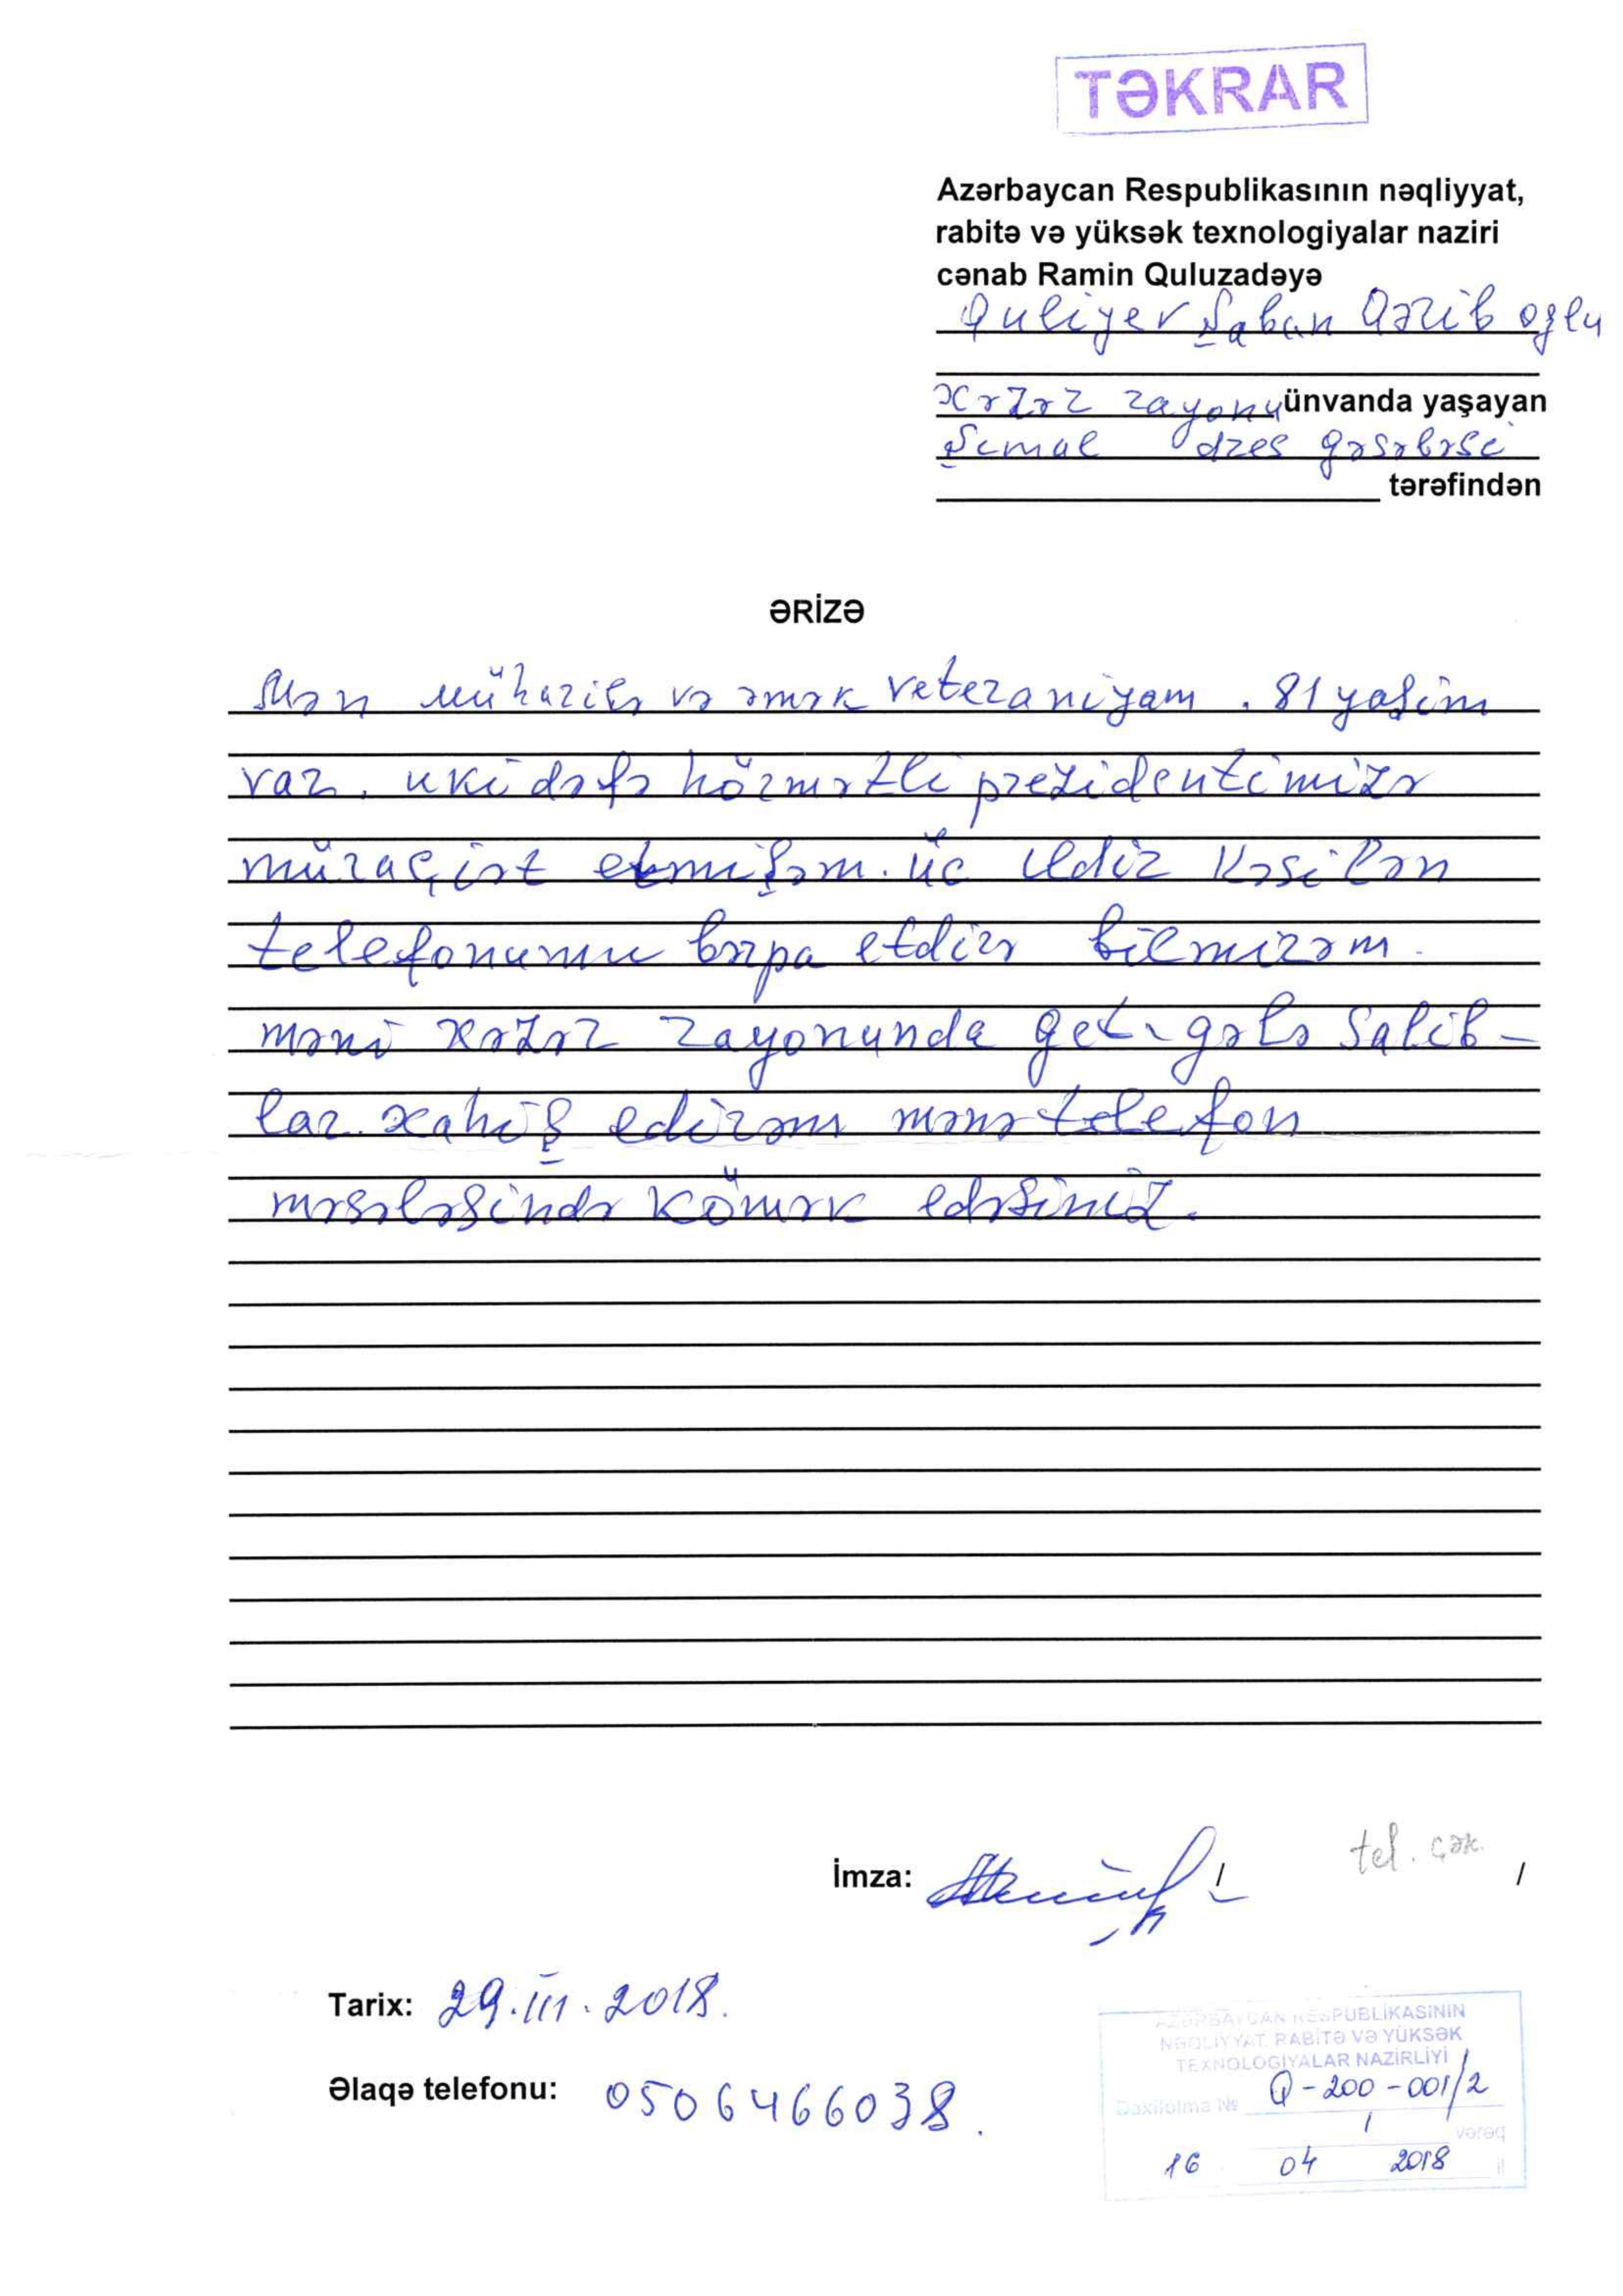 TƏKRAR
Azərbaycan Respublikasının nəqliyyat,
rabitə və yüksək texnologiyalar naziri
cənab Ramin Quluzadəyə
Quliyev Şaban Qərib oglu
Xəzər rayonu ünvanda yaşayan
Şimal dres qəsəbəsi
tərəfindən
ƏRİZƏ
Mən müharibə və əmək veteraniyam. 81 yaşim
var. iki dəfə hörmətli prezidentimizə
müraciət etmişəm. üc ildir kəsilən
telefonumu bərpa etdirə bilmirəm.
məni Xəzər rayonunda get-gələ salib-
lar. xahiş edirəm mənə telefon
məsələsində kömək edəsiniz.
İmza: / tel. çək. /
Tarix: 29.III.2018.
Əlaqə telefonu: 0506466038.
AZƏRBAYCAN RESPUBLİKASININ
NƏQLİYYAT, RABİTƏ VƏ YÜKSƏK
TEXNOLOGİYALAR NAZİRLİYİ
Daxilolma № Q-200-001/2
1 vərəq
16 04 2018 il